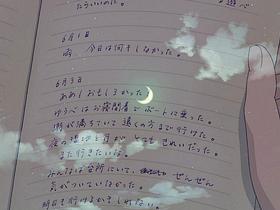 たらいいのに。
6月1日
雨 今日は何もしなかった。
6月3日
ああ、おもしろかった。
ゆうべはお寝間着でボートに乗った。
潮が満ちていて遠くの方まで行けた。
夜の湿地と月がとてもきれいだった。
また行きたいな。
みんなは台所にいて、ぜんぜん
気がついていなかった。
明日も行けるかもしれない。